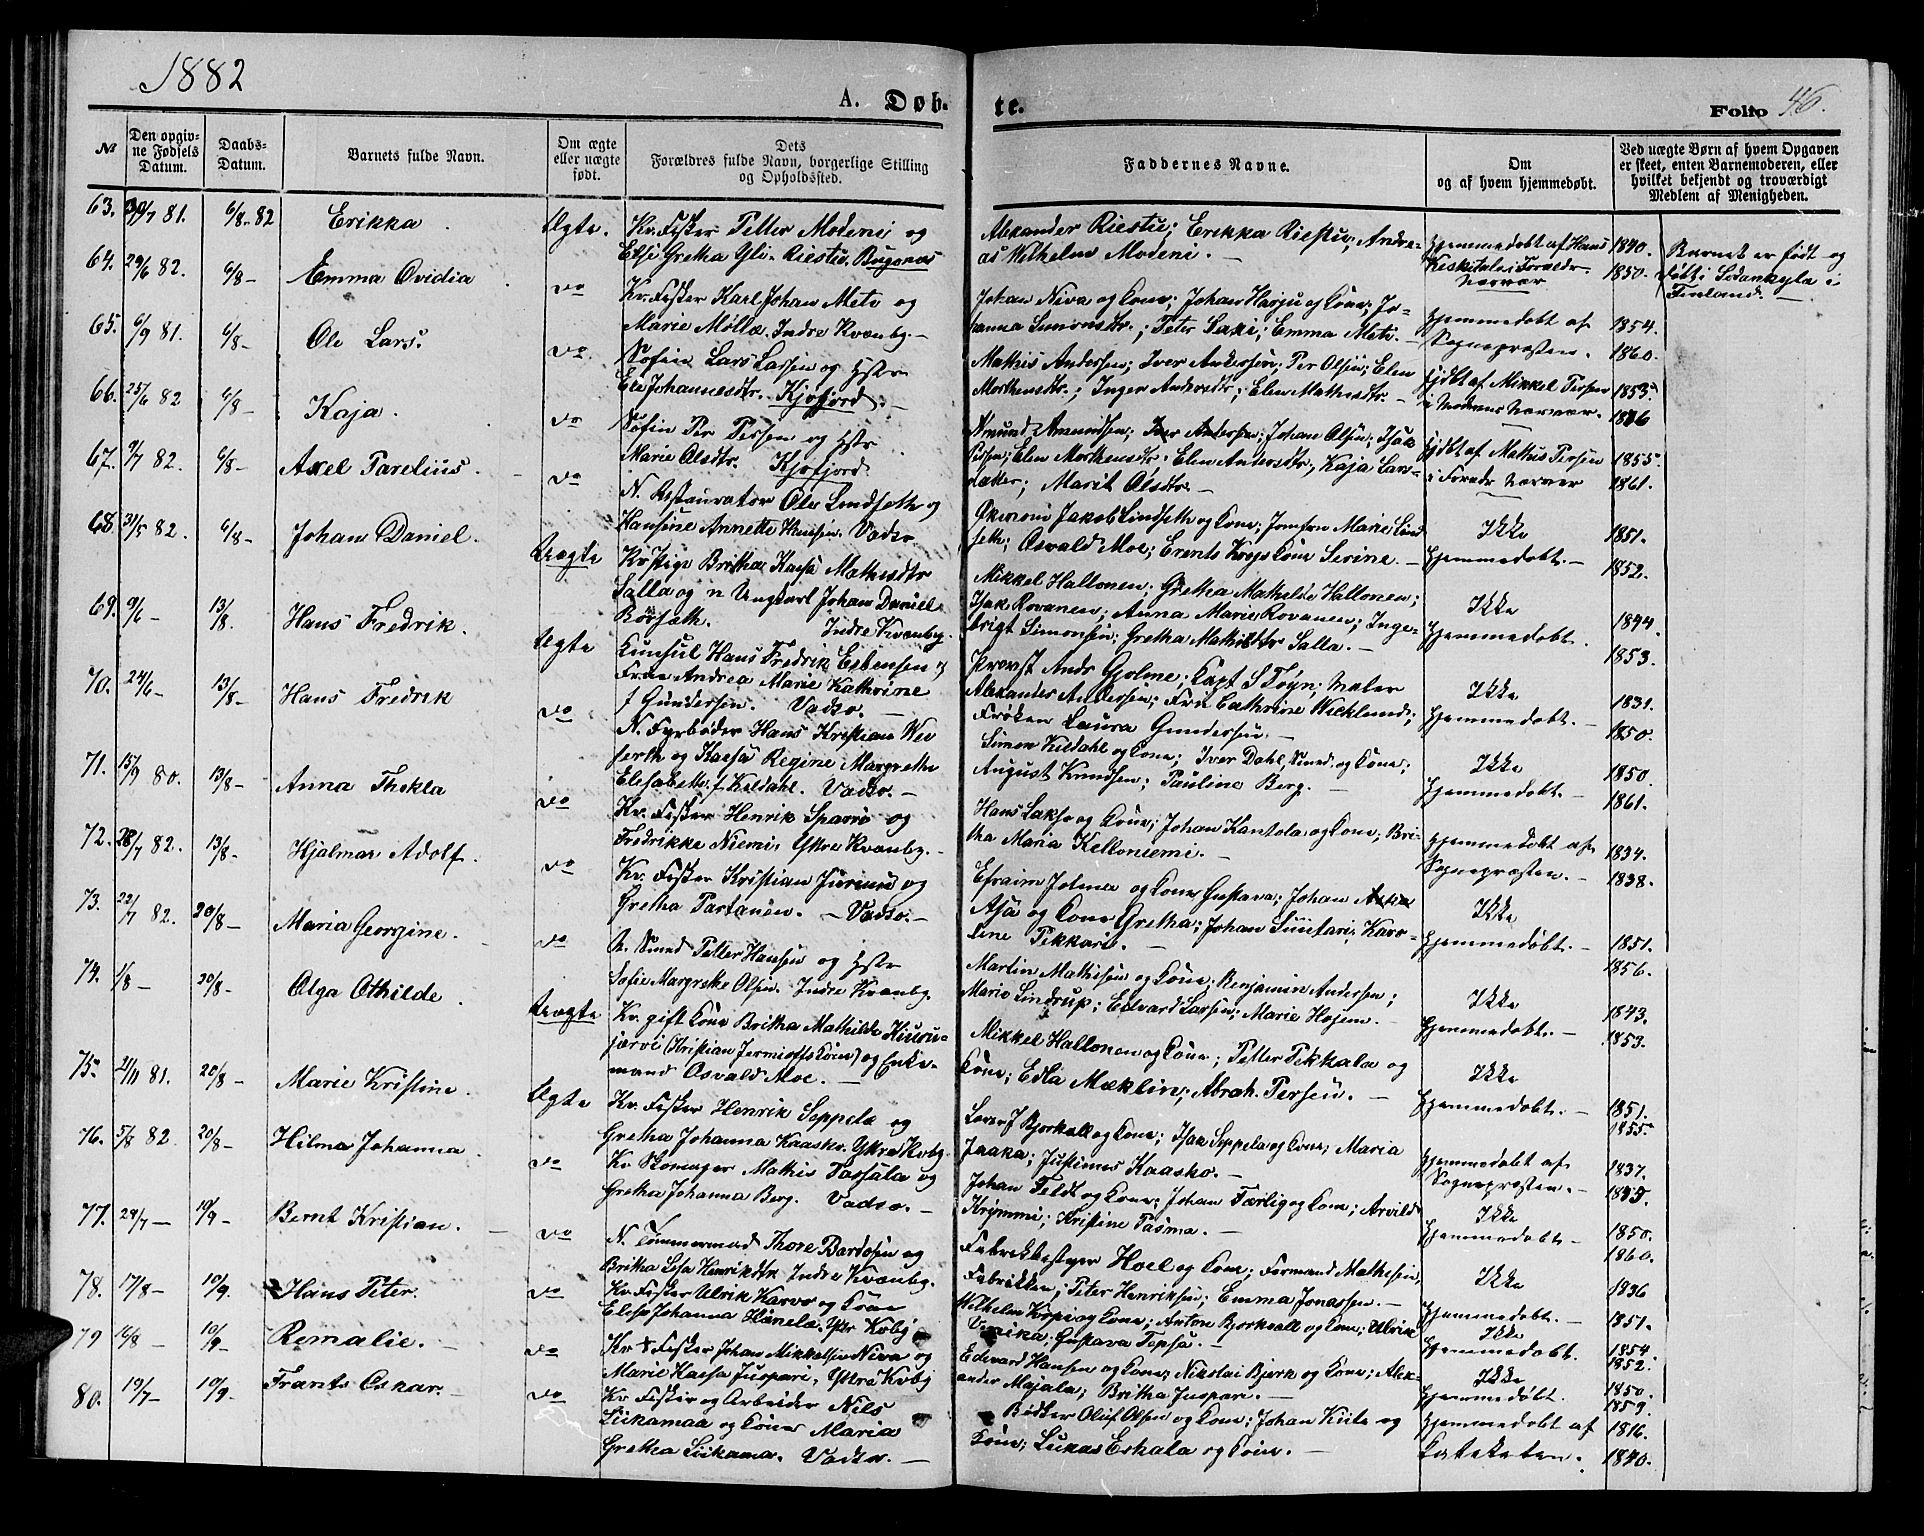 1882
A. Døb-
te.
Folio 46.
№
Den opgiv-
ne Fødsels
Datum.
Daabs-
Datum.
Barnets fulde Navn.
Om ægte
eller uægte
født.
Dets
Forældres fulde Navn, borgerlige Stilling
og Opholdssted.
Faddernes Navne.
Om
og af hvem hjemmedøbt.
Ved uægte Børn af hvem Opgaven
er skeet, enten Barnemoderen, eller
hvilket bekjendt og troværdigt
Medlem af Menigheden.
63. 81. 6/8-82 Erikka. Ægte. Kv. Fisker Petter Modeni og
Elsi Gretha Yli-Riestu. Bugønæs
Alexander Riestu; Erikka Riestu; Andre-
as Wilhelm Modeni. —
Hjemmedøbt af Hans
Keskitalo i Forældr.
Nærvær
1840.
1850.
Barnet er født og
døbt i Sodankyla i
Finland. —
64. 29/6 82. 6/8- Emma Ovidia do Kv. Fisker Karl Johan Mets og
Marie Møllæ. Indre Kvænbg. —
Johan Niva og Kone; Johan Harju og Kone; Jo-
hanna Simonsdtr.; Peter Saxi; Emma Mets. —
Hjemmedøbt af
Sognepræsten.
1854.
1860.
65. 6/9 81. 6/8- Ole Lars. do. Søfin Lars Larsen og Hstr
Ele Johannesdtr. Kjøfjord. —
Mathis Andersen; Iver Andersen; Per Olsen; Elen
Morthensdtr.; Inger Andersdtr; Elen Mathisdtr. —
Hjdbt af Mikkel Persen
i Moderens Nærvær.
1853
1846
66. 25/6 82 6/8- Kaja. do Søfin Per Persen og Hstr
Marie Olsdtr. Kjøfjord.
Amund Amundsen; Iver Andersen; Johan Olsen; Isak
Persen; Elen Morthensdtr. Elen Andersdtr, Kaja Lars-
datter; Marit Olsdtr —
Hjdbt af Mathis Persen
i Forældr Nærvær
1855.
1861.
67. 9/7 82. 6/8- Axel Parelius. do N. Restauratør Ole Lindseth og
Hansine Annette Knutsen. Vadsø.
Økonom Jakob Lindseth og Kone; Jomfru Marie Lind
seth; Osvald Moe; Erents Krogs Kone Serine. —
Ikke
Hjemmedøbt. —
1851.
1852.
68. 31/5 82. 6/8- Johan Daniel. Uægte Kv. Pige Britha Kaesa Mathisdtr
Salla og n Ungkarl Johan Daniel
Børseth. Indre Kvænbg.
Mikkel Hallonen; Gretha Mathilde Hallonen;
Isak Rovanen; Anna Marie Rovanen; Inge-
brigt Simonsen; Gretha Mathisdtr Salla. —
Ikke
Hjemmedøbt.
1844.
1853.
69. 9/6- 13/8. Hans Fredrik. Ægte Konsul Hans Fredrik Esbensen og
Frue Andrea Marie Kathrine
f Gundersen. Vadsø. —
Provst Ands Gjølme; Capt S Føyn; Maler
Alexander Andersen; Fru Cathrine Wicklund;
Frøken Laura Gundersen. —
Ikke
Hjemmedøbt. —
1831.
1850.
70. 24/6- 13/8- Hans Fredrik do N. Fyrbøder Hans Kristian Wei
serth og Kaesa Regine Margrethe
Elisabeth f. Kildahl. Vadsø. —
Simon Kildahl og Kone; Iver Dahl, Smed og Kone;
August Knudsen; Pauline Berg. —
Ikke
Hjemmedøbt. —
1850.
1861.
71. 15/9 80. 13/8- Anna Thekla do Kv. Fisker Henrik Sparro og
Fredrikke Niemi. Ytre Kvænbg. —
Hans Lakso og Kone; Johan Kantola og Kone; Bri-
tha Maria Kelloniemi. —
Hjemmedøbt af
Sognepræsten. —
1834.
1838.
72. 28/7 82. 13/8- Hjalmar Adolf. do Kv. Fisker Kristian Jurines og
Gretha Partanen. — Vadsø. —
Efraim Jolma og Kone Gustava; Johan
Asa og Kone Gretha; Johan Siiutari; Karo-
line Pekkari. —
Ikke
Hjemmedøbt. —
1851.
1856.
73. 22/7 82. 20/8- Maria Georgine. do N. Smed Petter Hansen og Hstr
Sofie Margrethe Olsen. Indre Kvænbg.
Martin Mathisen og Kone; Benjamin Andersen;
Marie Lindrup; Edvard Larsen; Marie Hojem. —
Ikke
Hjemmedøbt. —
1843.
1853.
74. 1/8- 20/8- Olga Othilde. Uægte Kv. gift Kone Britha Mathilde Kiuru-
järvi (Kristian Jermioffs Kone) og Enke-
mand Osvald Moe. —
Mikkel Hallonen og Kone; Petter Pekkala og
Kone; Edla Mæklin; Abrah. Persen. —
Ikke
Hjemmedøbt. —
1851.
1855.
75. 21/11 81. 20/8- Marie Kristine. Ægte Kv. Fisker Henrik Seppela og
Gretha Johanna Kaasko. Ytre Kvbg.
Bjørkvall og Kone; Isak Seppela og Kone; Maria
Jaaka; Justinus Kaasko. —
Hjemmedøbt af
Sognepræsten. —
1837.
1845.
76. 5/8 82. 20/8- Hilma Johanna. do Kv. Skomager Mathis Tassala og
Gretha Johanna Berg. Vadsø. —
Johan Feldt og Kone; Johan Færlig og Kone; Arvild
Krømmi; Kristine Pasma. —
Ikke
Hjemmedøbt —
1850.
1860.
77. 24/7 — 10/9- Bernt Kristian. do N. Tømmermand Thore Bardosen og
Britha Lisa Henriksdtr Indre Kvænbg.
Fabrikbestyrer Hoel og Kone; Formand Mathisen
Fabrikken; Peter Henriksen; Emma Jonassen. —
Ikke
Hjemmedøbt. —
1836
1851.
78. 17/8- 10/9. Hans Peter. do Kv. Fisker Ulrik Karvo og Kone
Elisa Johanna Hänelä. Ytr Kvbg
Wilhelm Koppi og Kone; Anton Bjørkvall og Kone; Ulrik
Venika; Gustava Tepsa. —
Ikke
Hjemmedøbt.
1854
1852.
79 16/8 — 10/9- Romalie. — do Kv Fisker Johan Mikkelsen Niva og
Marie Kaesa Juopari, Ytre Kvbg
Edevard Hansen og Kone; Nikolai Bjørk og Kone; Alex-
ander Majala; Britha Juopari. —
Ikke
Hjemmedøbt.
1850.
1859.
80. 19/7- 10/9- Frants Oskar. do Kv Fisker og Arbeider Nils
Siikamaa og Kone Maria
Gretha Siikama. Vadsø. —
Bødker Oluf Olsen og Kone; Johan Kiite og
Kone; Lukas Eskala og Kone. —
Hjemmedøbt af
Kateketen.
1816.
1840.